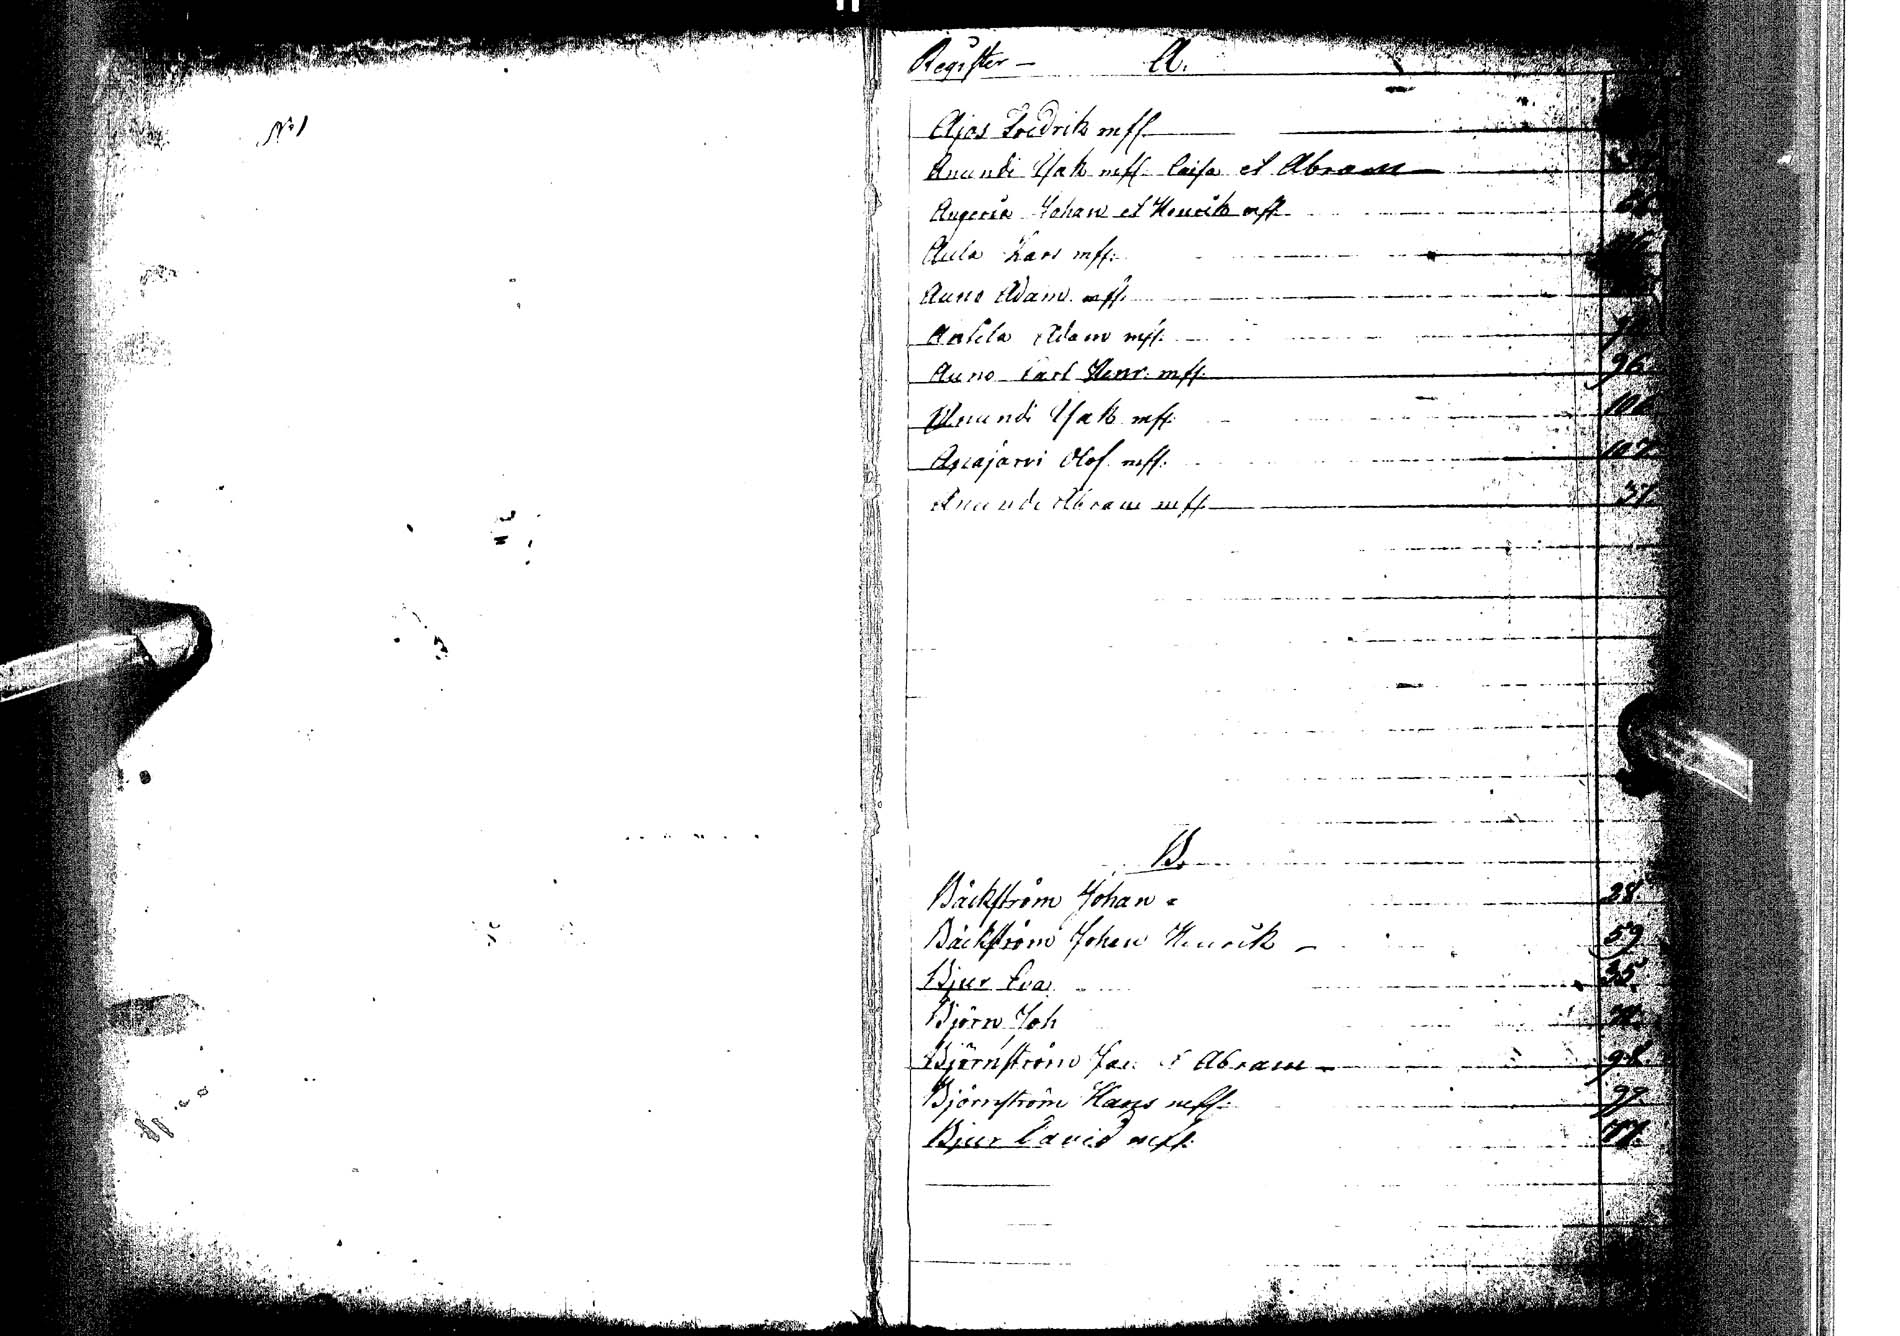 No 1
Register — A.
Ajos Fredrik mfl.
Anundi Isak mfl. Caisa et Abram — 37.
Angeria Johan et Henrik mfl.
Aula Lars mfl.
Auno Adam mfl.
Anttila Adam mfl.
Auno Carl Henr. mfl. 96.
Anundi Isak mfl.
Apiajärvi Olof mfl. 107.
Anundi Abram mfl. 37.
B.
Bäckström Johan 28.
Bäckström Johan Henrik — 59
Bjur Eva 35.
Björn Joh
Björnström Abram — 98.
Björnström Hans mfl. 97.
Bjur David mfl. 77.